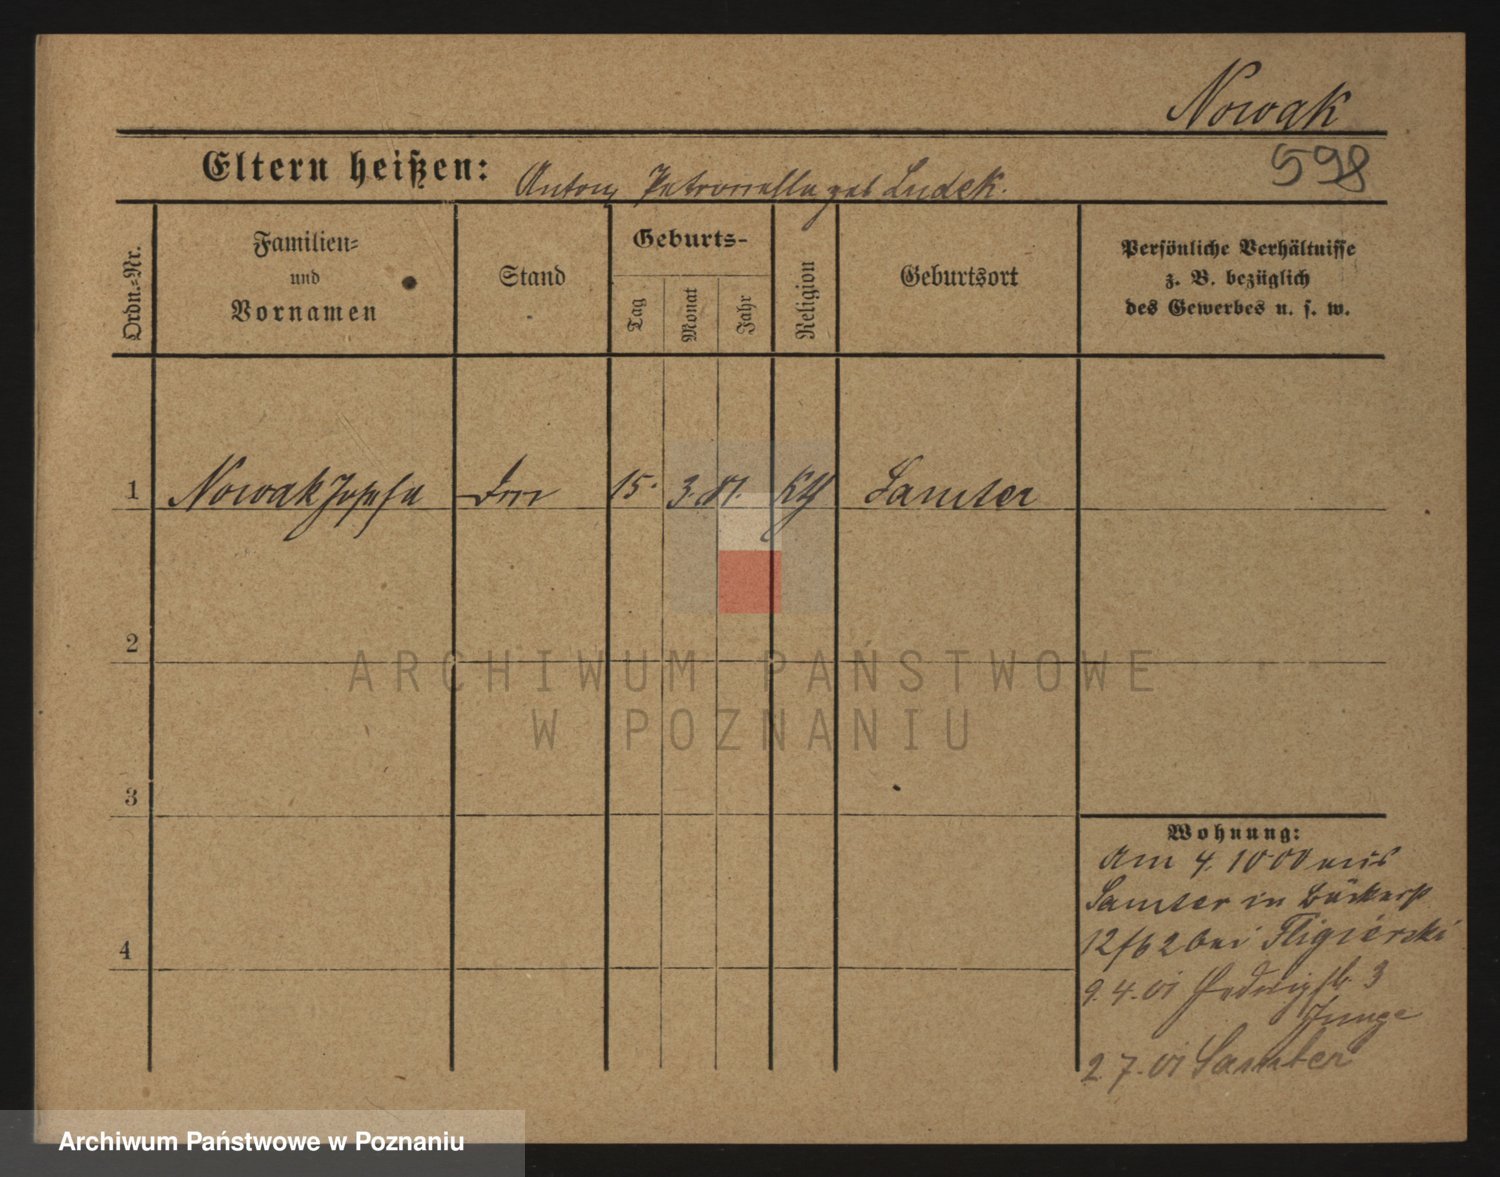 Nowak
598
Eltern heißen: Anton, Petronella geb Ludek.
Ordn.-Nr.
Familien- und Vornamen
Stand
Geburts-
Tag
Monat
Jahr
Religion
Geburtsort
Persönliche Verhältnisse
z. B. bezüglich
des Gewerbes u. s. w.
1 Nowak Josefa 15. 3. 81. Kth Samter
2
3
4
Wohnung:
Am 4. 10 00 aus
Samter in Bäckerst
12/13 2 bei Fligierski
9. 4. 01 3
Junge
2. 7. 01 Samter
ARCHIWUM PAŃSTWOWE
W POZNANIU
Archiwum Państwowe w Poznaniu